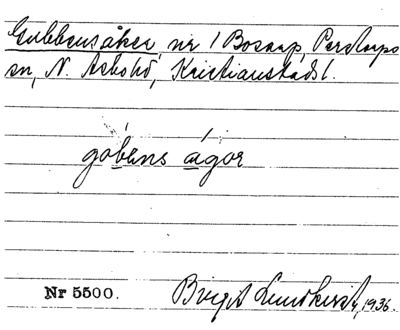 Gubbensåker, nr 1 Bosarp, Perstorps
sn, N. Åsbo hd, Kristianstads l.
gobens ågor
Nr 5500.
Birgit Lundkvist, 1936.